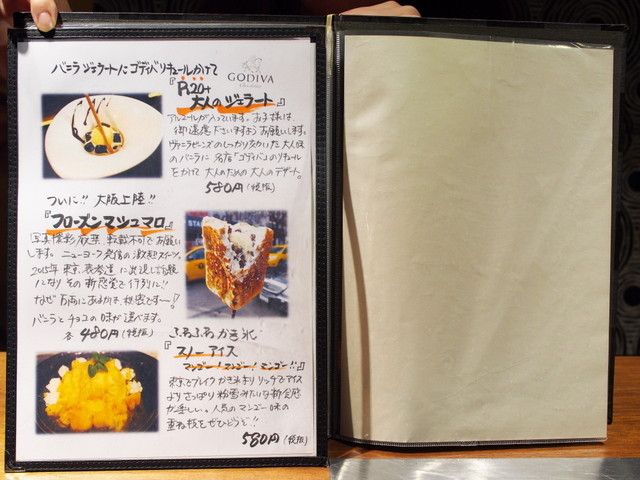 バニラジェラートにゴディバリキュールかけて
GODIVA
『R20+
大人のジェラート』
アルコールが入っています。お子様は
御遠慮下さいますようお願いします。
ヴァニラビーンズのしっかり効いた大人味
のバニラに名店「ゴディバ」のリキュール
をかけて大人のための大人のデザート。
580円(税抜)
ついに!! 大阪上陸!!
『フローズンマシュマロ』
写真撮影歓迎 転載不可でお願い
します。ニューヨーク発信の激烈スイーツ。
2015年東京、表参道に出店して話題
になりその新感覚で行列に!!
なぜ万両にあるかは、秘密ですー!
バニラとチョコの味が選べます。
各480円(税抜)
ふわふわかき氷
『スノーアイス
マンゴー!マンゴー!マンゴー!!』
東京でブレイクかき氷よりリッチでアイス
よりさっぱり粉雪みたいな新食感
が楽しい。人気のマンゴー味の
重ね技をぜひどうぞ!!
580円(税抜)